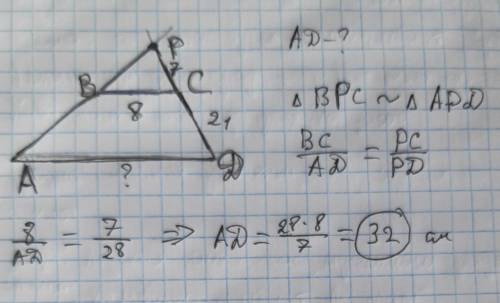 P
7
B
C
8
21
A
?
D
AD-?
△ BPC ~ △ APD
BC/AD = PC/PD
8/AD = 7/28 ⇒ AD = 28·8/7 = 32 см